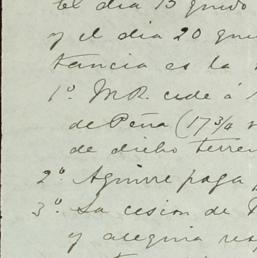 el dia 15 quedo
y el dia 20 que
tancia es la
1º. M.R. cede á
de Peña (17 3/4
de dicho terre
2º Aguirre paga
3º. La cesion de
y alegria res